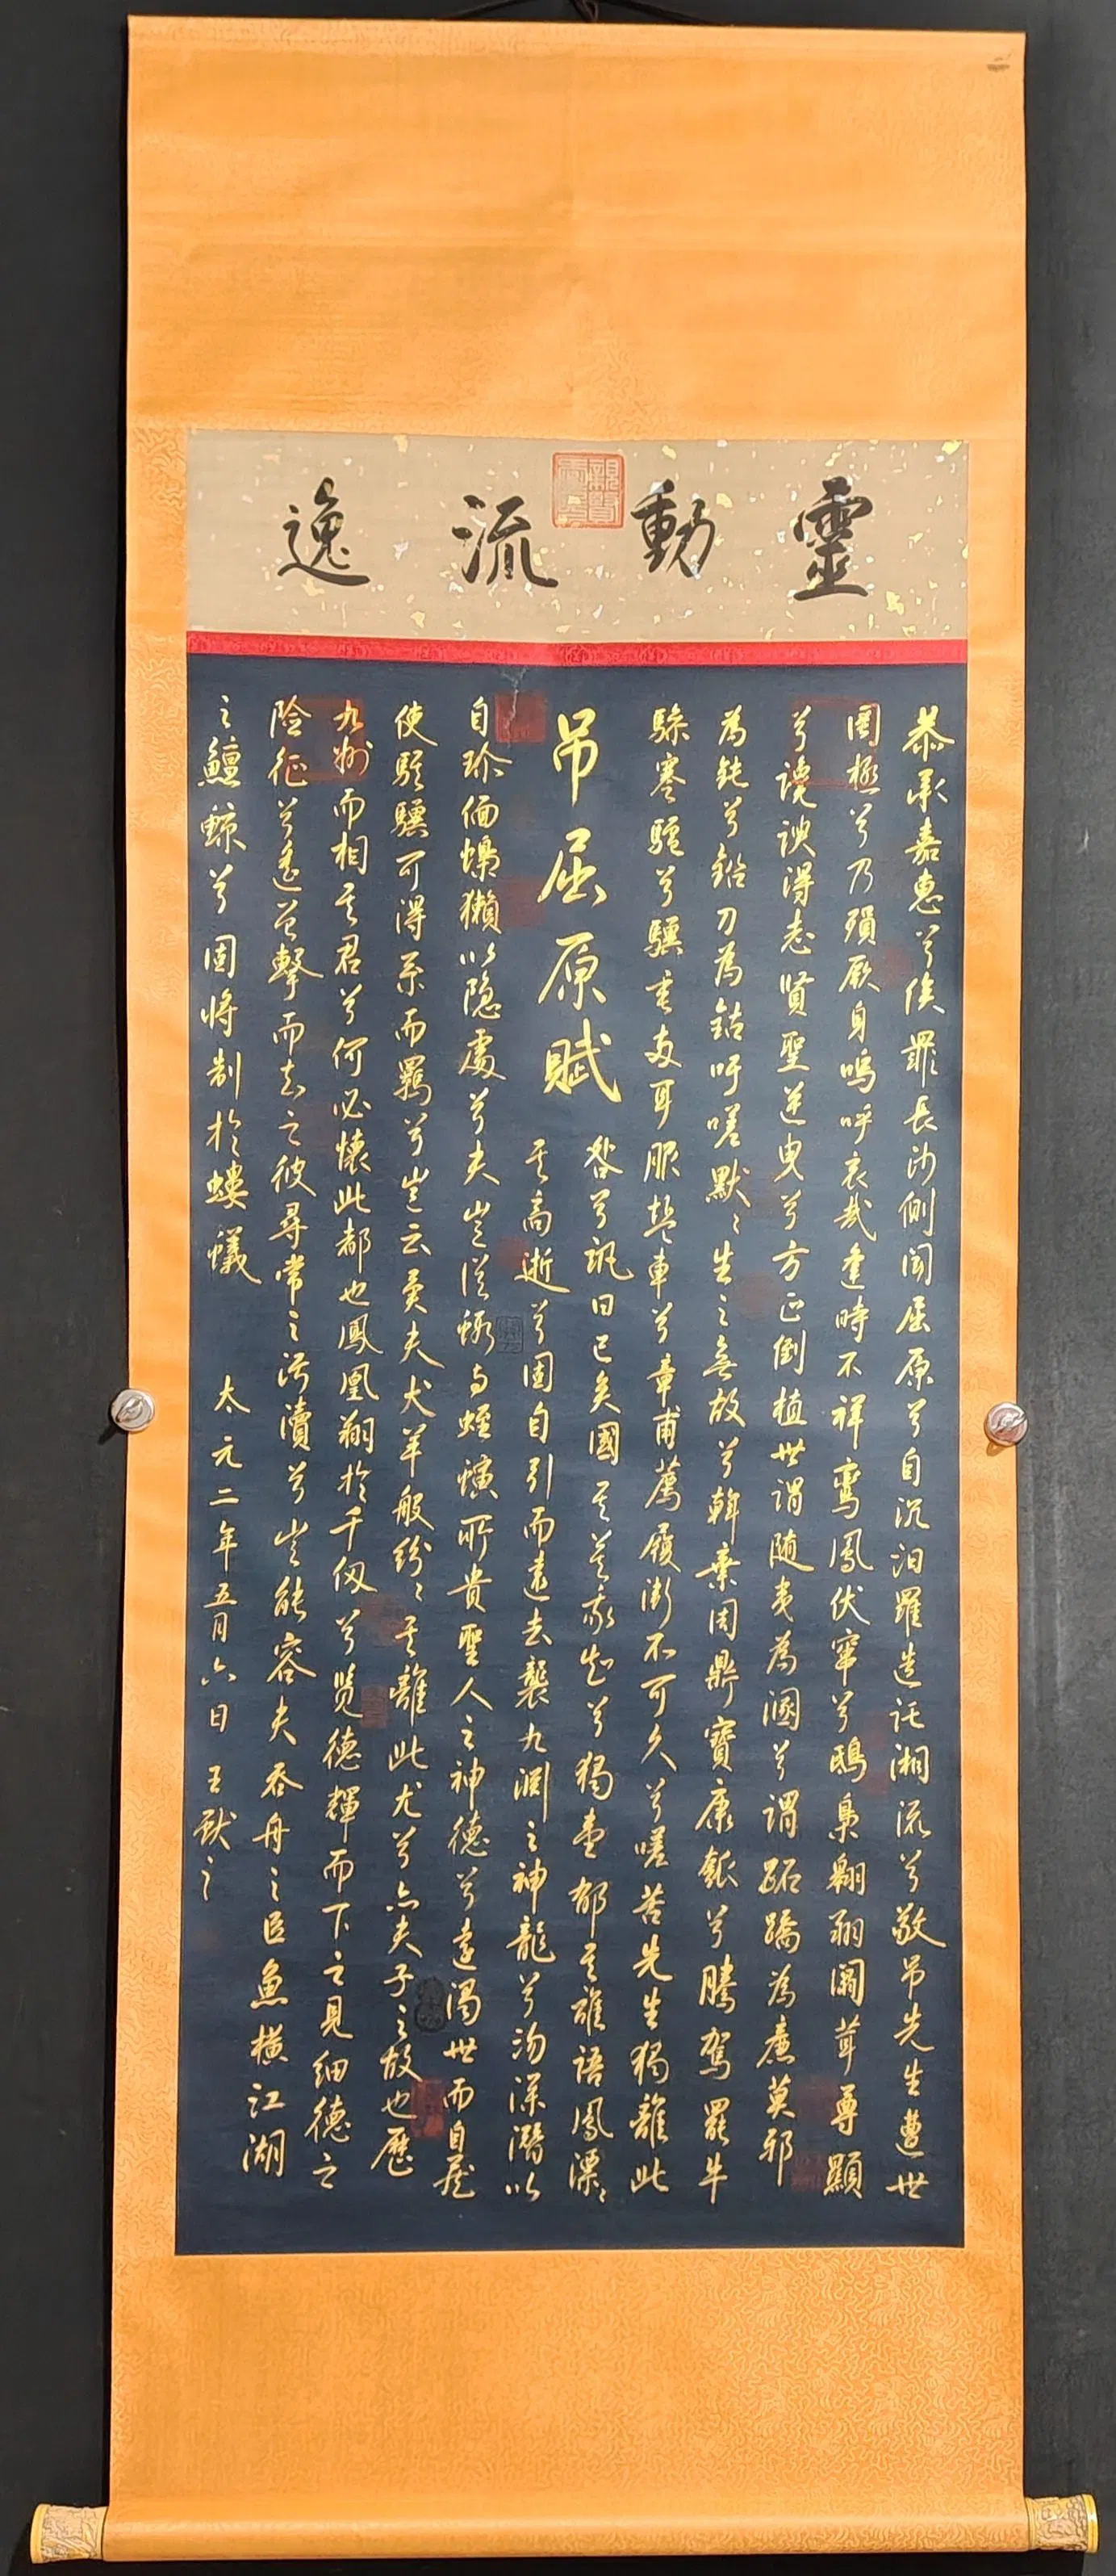 靈動流逸
恭承嘉惠兮俟罪長沙側聞屈原兮自沉汨羅造託湘流兮敬吊先生遭世
罔極兮乃殞厥身嗚呼哀哉逢時不祥鸞鳳伏竄兮鴟梟翱翔闒茸尊顯
兮讒諛得志賢聖逆曳兮方正倒植世謂隨夷為溷兮謂跖蹻為廉莫邪
為鈍兮鉛刀為銛吁嗟默〻生之無故兮斡棄周鼎寶康瓠兮騰駕罷牛
驂蹇驢兮驥垂兩耳服鹽車兮章甫薦履漸不可久兮嗟苦先生獨離此
咎兮訊曰已矣國其莫我知兮獨壹郁其誰語鳳漂〻
吊屈原賦
其高逝兮固自引而遠去襲九淵之神龍兮沕深潛以
自珍偭蟂獺以隱處兮夫豈從蝦與蛭螾所貴聖人之神德兮遠濁世而自藏
使騏驥可得系而羈兮豈云異夫犬羊般紛〻其離此尤兮亦夫子之故也歷
九州而相其君兮何必懷此都也鳳凰翔於千仞兮覽德輝而下之見細德之
險征兮遙曾擊而去之彼尋常之污瀆兮豈能容夫吞舟之巨魚橫江湖
之鱣鯨兮固將制於螻蟻
太元二年五月六日 王獻之